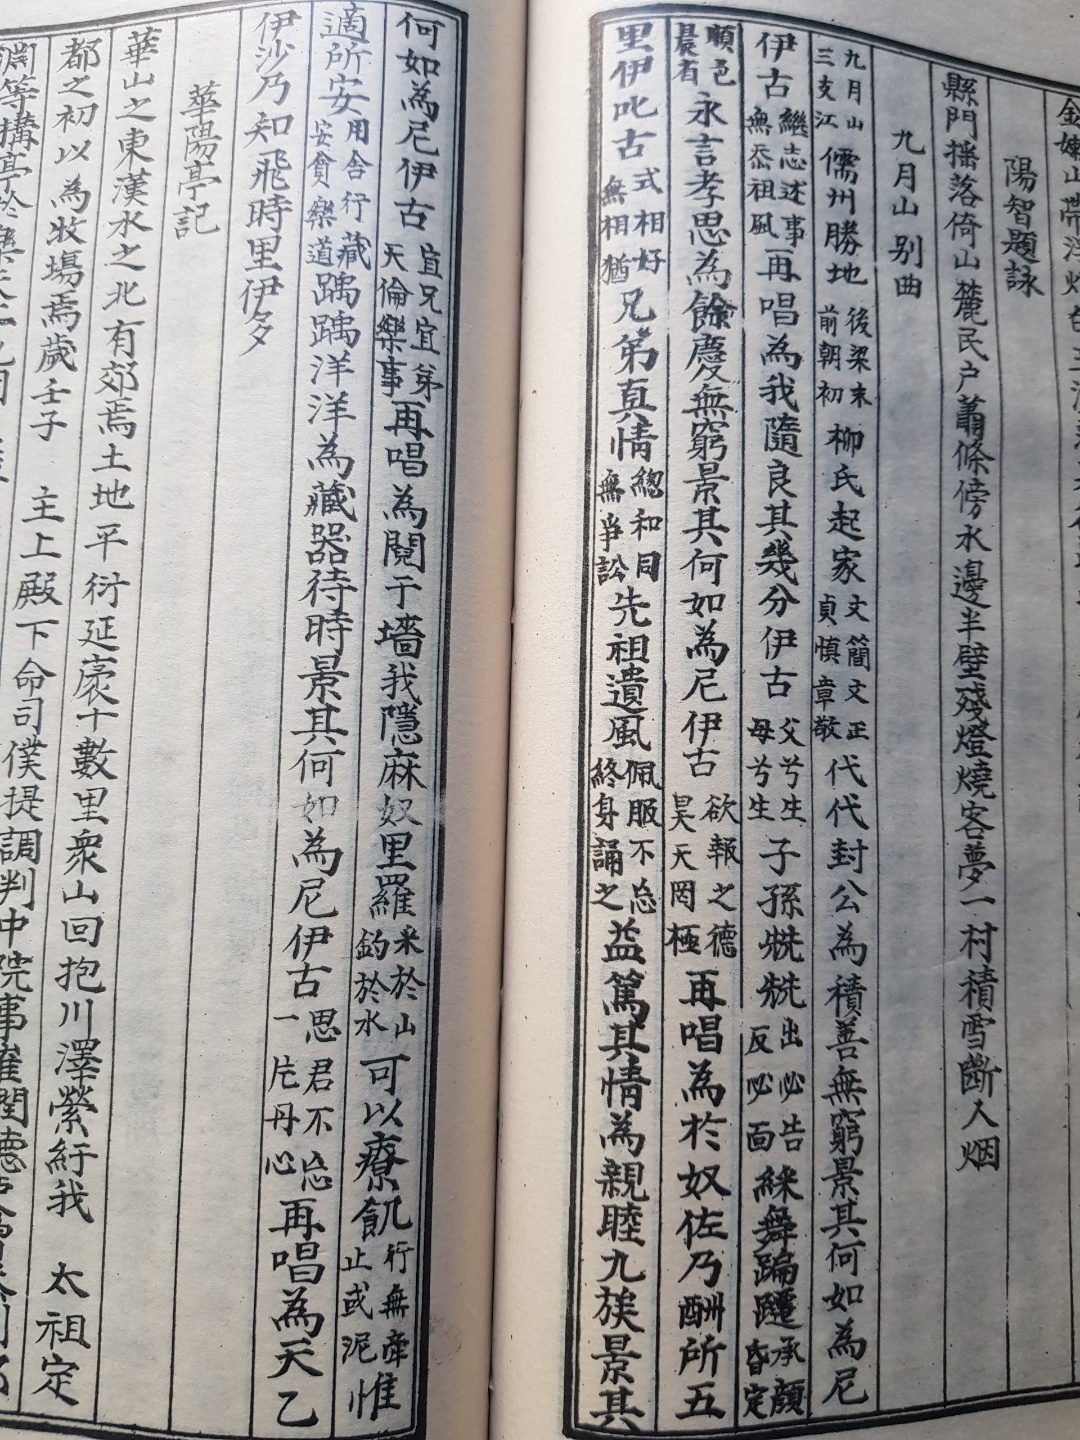 陽智題詠
縣門搖落倚山麓民戶蕭條傍水邊半壁殘燈燒客夢一村積雪斷人烟
九月山別曲
九月山三支江儒州勝地後梁末前朝初柳氏起家文簡文正貞愼章敬代代封公為積善無窮景其何如為尼
伊古繼志述事無忝祖風再唱為我隨良其幾分伊古父兮生母兮生子孫兟兟出必告反必面綵舞蹁躚承顔昏定
順色晨省永言孝思為餘慶無窮景其何如為尼伊古欲報之德昊天罔極再唱為於奴佐乃酬所五
里伊叱古式相好無相猶兄弟真情總和同無爭訟先祖遺風佩服不忘終身誦之益篤其情為親睦九族景其
何如為尼伊古宜兄宜弟天倫樂事再唱為鬩于墻我隱麻奴里羅采於山釣於水可以療飢行無牽止或泥惟
適所安用舍行藏安貧樂道踽踽洋洋為藏器待時景其何如為尼伊古思君不忘一片丹心再唱為天乙
伊沙乃知飛時里伊多
華陽亭記
華山之東漢水之北有郊焉土地平衍延袤十數里衆山回抱川澤縈紆我 太祖定
都之初以為牧塲焉歲壬子 主上殿下命司僕提調判中院事崔閏德